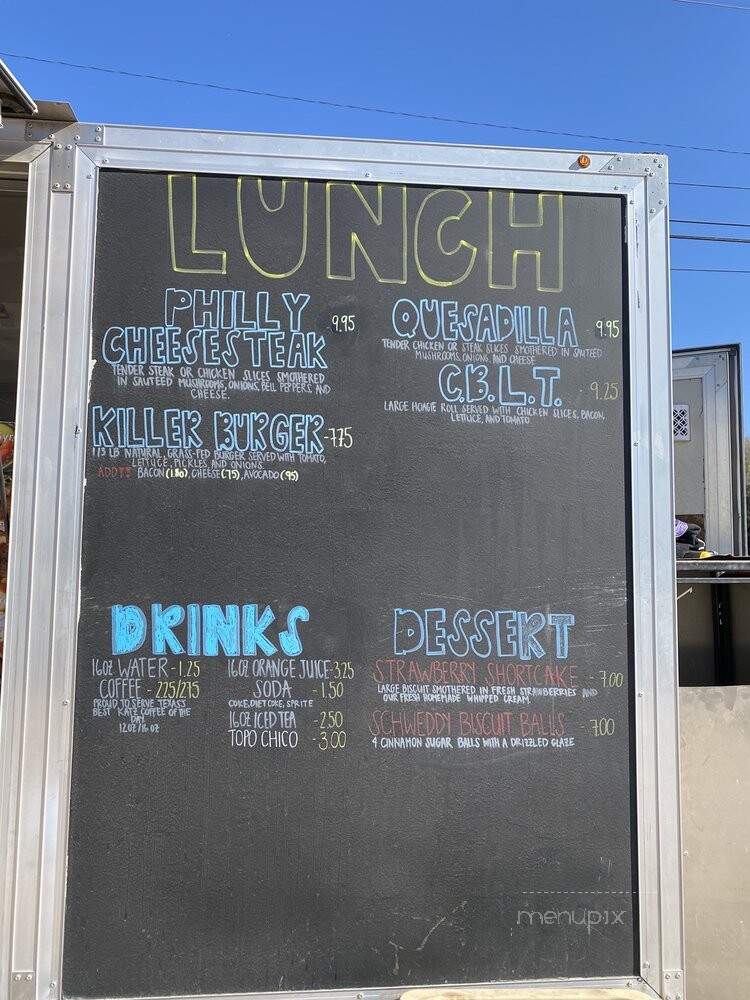 LUNCH
PHILLY
CHEESESTEAK - 9.95
TENDER STEAK OR CHICKEN SLICES SMOTHERED
IN SAUTEED MUSHROOMS, ONIONS, BELL PEPPERS, AND
CHEESE.
KILLER BURGER - 7.75
1/3 LB NATURAL, GRASS-FED BURGER SERVED WITH TOMATO,
LETTUCE, PICKLES, AND ONIONS.
ADD!! BACON (1.80), CHEESE (.75), AVOCADO (.95)
QUESADILLA - 9.95
TENDER CHICKEN OR STEAK SLICES SMOTHERED IN SAUTEED
MUSHROOMS, ONIONS, AND CHEESE
C.B.L.T. - 9.25
LARGE HOAGIE ROLL SERVED WITH CHICKEN SLICES, BACON,
LETTUCE, AND TOMATO
DRINKS
16OZ WATER - 1.25
COFFEE - 2.25/2.75
PROUD TO SERVE TEXAS'S
BEST KATZ COFFEE OF THE
DAY.
12 OZ/16 OZ
16OZ ORANGE JUICE - 3.25
SODA - 1.50
COKE, DIET COKE, SPRITE
16OZ ICED TEA - 2.50
TOPO CHICO - 3.00
DESSERT
STRAWBERRY SHORTCAKE - 7.00
LARGE BISCUIT SMOTHERED IN FRESH STRAWBERRIES AND
OUR FRESH HOMEMADE WHIPPED CREAM.
SCHWEDDY BISCUIT BALLS - 7.00
4 CINNAMON SUGAR BALLS WITH A DRIZZLED GLAZE
menupix